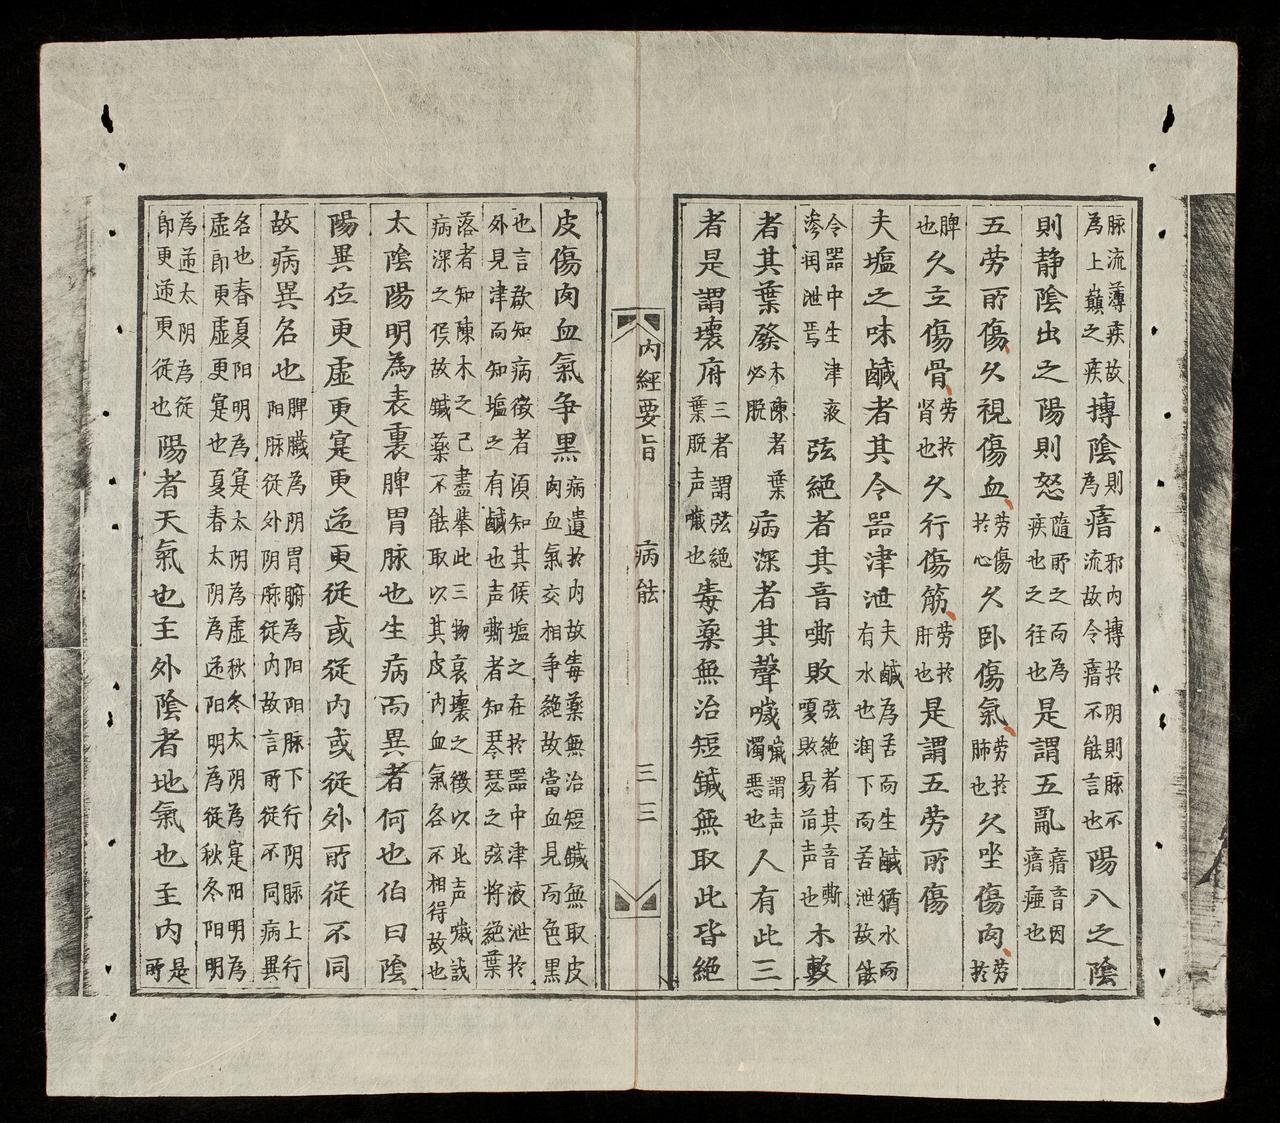 脉流薄疾故為上巔之疾摶陰則為瘖邪内摶扵阴則脉不流故令瘖不能言也陽八之陰
則静陰出之陽則怒隨所之而為疾也之往也是謂五亂瘖音因瘖瘂也
五劳所傷久視傷血劳傷扵心久卧傷氣劳扵肺也久坐傷肉劳扵
脾也久立傷骨劳扵肾也久行傷筋劳扵肝也是謂五劳所傷
夫塩之味鹹者其令器津泄夫鹹為苦而生鹹猶水而有水也润下而苦泄故能
令器中生津液渗润泄焉弦絕者其音嘶敗弦絕者其音嘶嗄敗易首声也木敷
者其葉發木陳者葉必脱病深者其聲噦噦謂声濁惡也人有此三
者是謂壞府三者謂弦絕葉脱声噦也毒藥無治短鍼無取此皆絕
内經要旨 病能 三三
皮傷肉血氣争黑病遺扵内故毒藥無治短鍼無取皮肉血氣交相争絕故當血見而色黑
也言欲知病徴者須知其候塩之在扵器中津液泄扵外見津而知塩之有鹹也声嘶者知琴瑟之弦将絕葉
落者知陳木之已盡舉此三物衰壞之徴以比声噦誠病深之候故鍼藥不能取以其皮内血氣各不相得故也
太陰陽明為表裏脾胃脉也生病而異者何也伯曰陰
陽異位更虛更寔更逆更従或従内或従外所従不同
故病異名也脾臟為阴胃腑為阳阳脉下行阴脉上行阳脉従外阴脉従内故言所従不同病異
名也春夏阳明為寔太阴為虚秋冬太阴為寔阳明為虛即更虛更寔也夏春太阴為逆阳明為従秋冬阳明
為逆太阴為従即更逆更従也陽者天氣也主外陰者地氣也主内是所